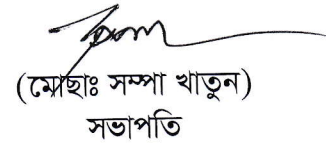 (মোছাঃ সম্পা খাতুন)
সভাপতি